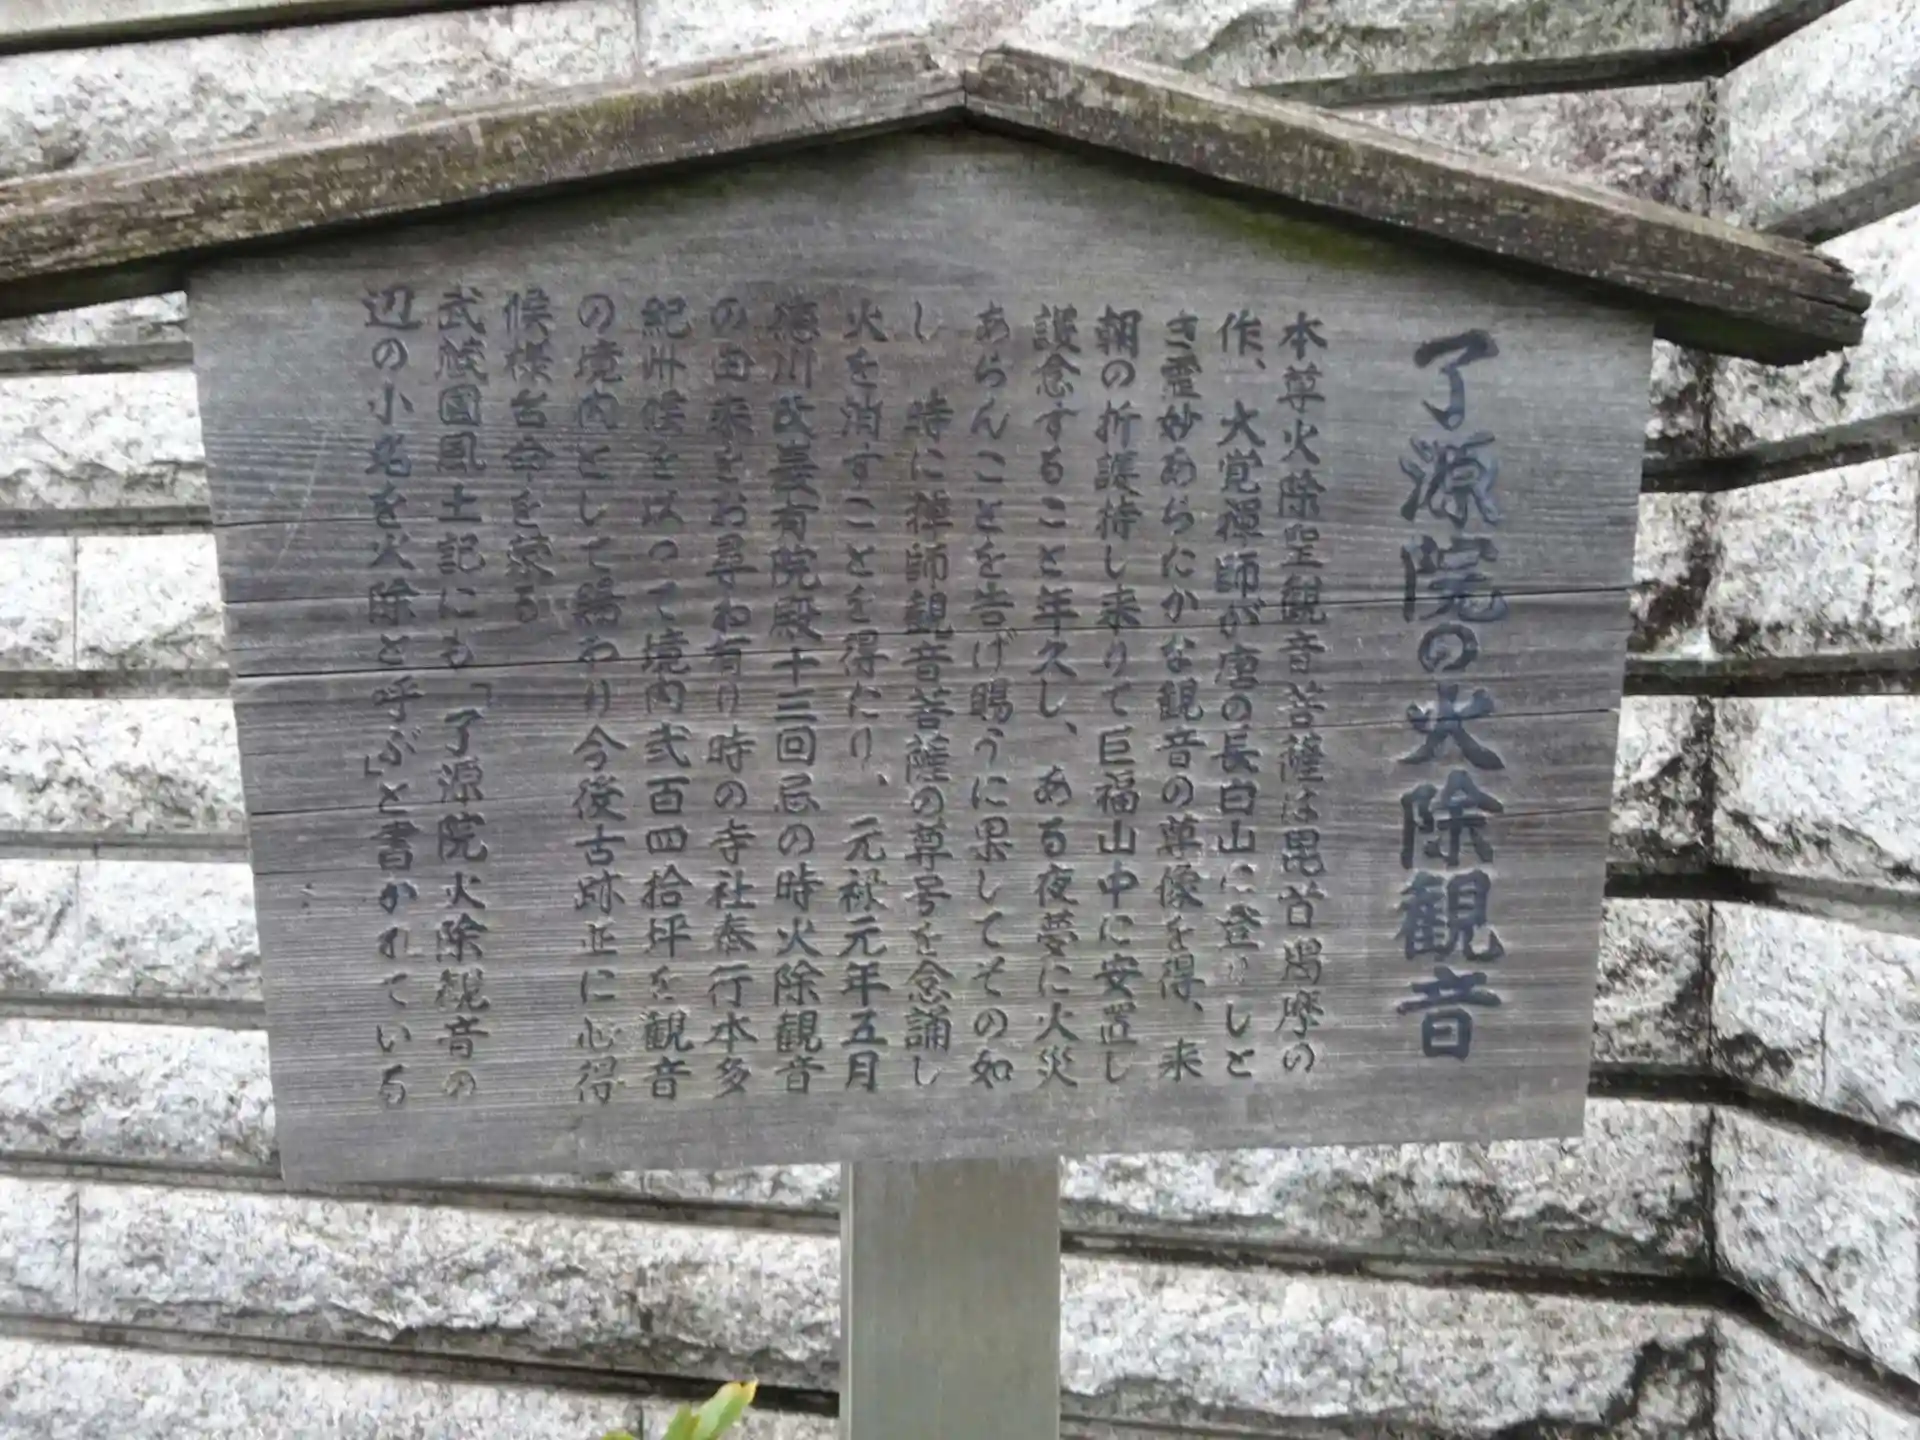 了源院の火除観音
本尊火除聖観音菩薩は毘首羯摩の
作、大覚禅師が唐の長白山に登りしと
き霊妙あらたかな観音の尊像を得、来
朝の折護持し来りて巨福山中に安置し
護念すること年久し、ある夜夢に火災
あらんことを告げ賜うに果してその如
し 時に禅師観音菩薩の尊号を念誦し
火を消すことを得たり、元禄元年五月
徳川 有院殿十三回忌の時火除観音
の由来をお尋ね有り時の寺社奉行本多
紀州候を以って境内弐百四拾坪を観音
の境内として賜わり今後古跡並に心得
候様台命を蒙る
武蔵國風土記にも「了源院火除観音の
辺の小名を火除と呼ぶ」と書かれている